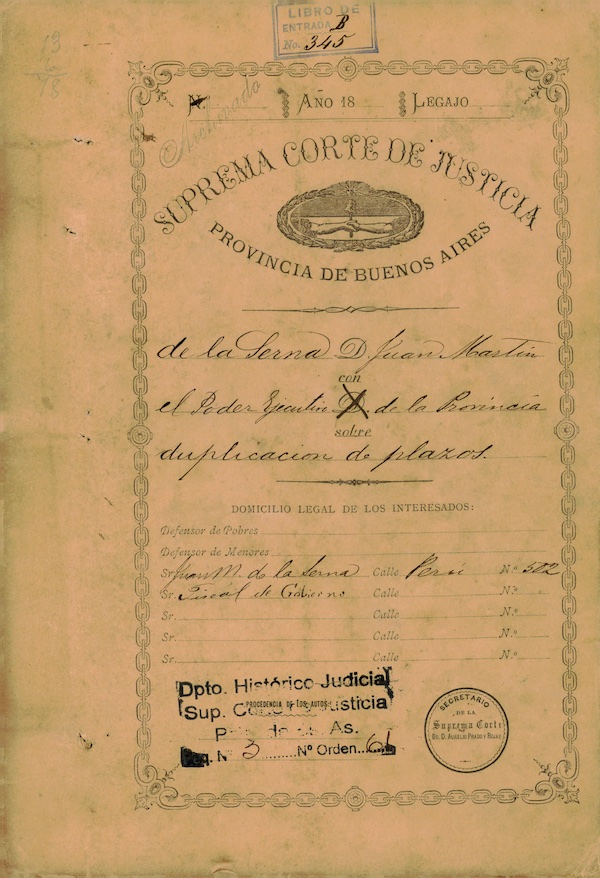 LIBRO DE
ENTRADA B
No. 345
13
78
N. Año 18 Legajo
Archivado
SUPREMA CORTE DE JUSTICIA
PROVINCIA DE BUENOS AIRES
de la Serna D. Juan Martin
con
el Poder Ejecutivo D. de la Provincia
sobre
duplicacion de plazos.
DOMICILIO LEGAL DE LOS INTERESADOS:
Defensor de Pobres
Defensor de Menores
Sr. Juan M. de la Serna Calle Perú N.º 502
Sr. Fiscal de Gobierno Calle N.º
Sr. Calle N.º
Sr. Calle N.º
Sr. Calle N.º
Dpto. Histórico Judicial
PROCEDENCIA DE LOS AUTOS:
Sup. Justicia
As.
Paq. Nº 3 Nº Orden 61
SECRETARIO
DE LA
Suprema Corte
DR. D. AURELIO PRADO Y ROJAS